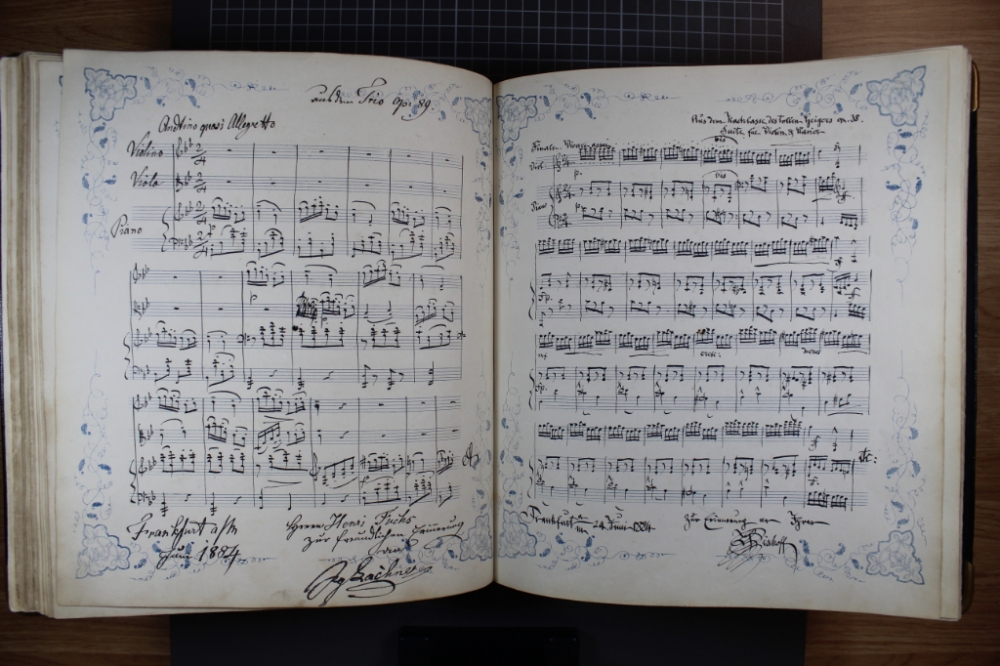 aus dem Trio op: 89.
Andtino quasi Allegretto
Violino
Viola
Piano
p
p
Frankfurt a/M
Juni 1884
Herrn Henri Fuchs
zur freundlichen Erinnerung
Ig Lachner
Aus dem Nachlasse des tollen Geigers op. 30.
Suite für Violin & Klavier
Viol
p.
p
cresc:
etc:
Frankfurt
24 Juni 1884.
zur Erinnerung an Ihren
Bischoff